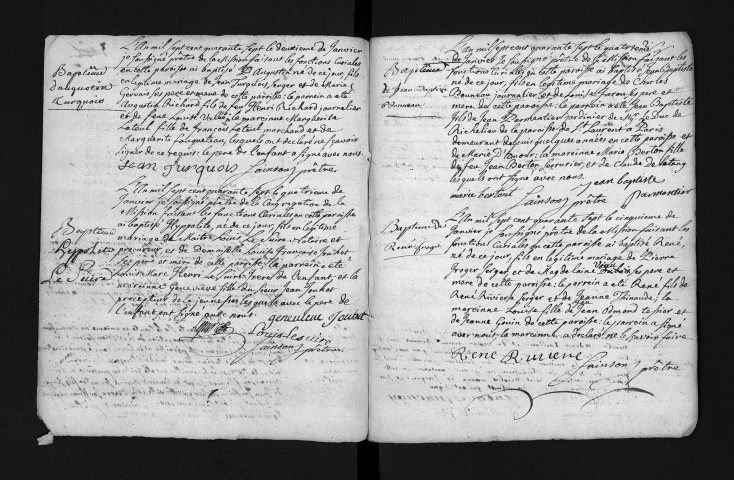 Baptême
d'augustin
Turquois
L'An mil sept cent quarante sept le deuxieme de Janvier
je soussigné prêtre de la Mission faisant les fonctions Curiales
en cette paroisse ai baptisé Augustin né de ce jour, fils
en legitime mariage de Jean Turquois Serger et de Marie
Gervais ses pere et mere de cette paroisse: le parrein a eté
Augustin Richard fils de feu Henri Richard journalier
et de feue Louise la mareinne Margherite
Lateul fille de François Lateul marchand et de
Marguerite lesquels ont declaré ne sçavoir
signer de ce requis: le pere de l'enfant a signé avec nous.
Jean Turquois Sainson prêtre
Baptême
Hyppolite
Le Suire
L'An mil sept cent quarante sept le quatrieme de
Janvier je soussigné prêtre de la Congregation de la
Mission faisant les fonctions Curiales en cette paroisse
ai baptisé Hyppolite, né de ce jour, fils en legitime
mariage de Maitre Louis Le Suire Notaire et
procureur et de Demoiselle Louise Françoise Joubert
ses pere et mere de cette paroisse: le parrein a eté
Louis Marc Henri Le Suire frere de l'enfant, et la
mareinne Genevieve fille du Sieur Jean Joubert
precepteur de la jeunesse: lesquels avec le pere de
l'enfant ont signé avec nous.
genevieve Joubert
Louis Lesuire
Sainson prêtre
Baptême
de Jean Baptiste
Bouneau
L'An mil sept cent quarante sept le quatrieme
de Janvier je soussigné prêtre de la Mission faisant les
fonctions Curiales en cette paroisse ai baptisé Jean Baptiste
né de ce jour, fils en legitime mariage de Charles
Bouneau journalier et de Louise ses pere et
mere de cette paroisse: le parrein a eté Jean Baptiste
fils de Jean Parmentier jardinier de Mgr. Le Duc de
Richelieu de la paroisse de St Laurent a Paris
demeurant depuis quelques années en cette paroisse et
de Marie la mareinne Marie Berton fille
de feu Jean Berton Serrurier, et de Claude de
lesquels ont signé avec nous.
Jean baptiste
marie bertont Sainson prêtre Parmentier
Baptême de
René froger
L'An mil sept cent quarante Sept le cinquieme de
Janvier je soussigné prêtre de la Mission faisant les
fonctions Curiales en cette paroisse ai baptisé René,
né de ce jour, fils en legitime mariage de Pierre
froger Serger et de Magdelaine ses pere et
mere de cette paroisse: le parrein a eté René fils de
René Riviere Serger et de Jeanne Thinaude; la
mareinne Louise fille de Jean Odmond tessier et
de Jeanne Gouin de cette paroisse: le parrein a signé
avec nous la mareinne a declaré ne le sçavoir faire
René Riviere Sainson prêtre